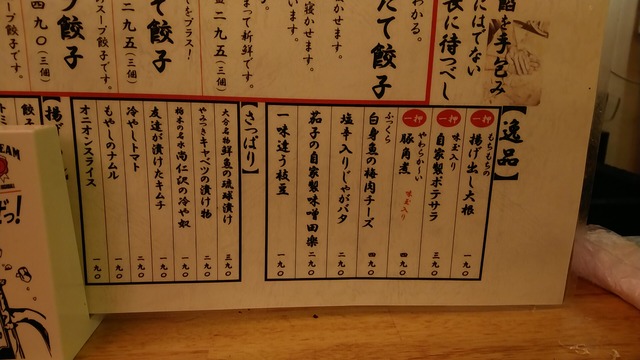 餡を手包み
にはでない
衣に待つべし
わかる。
たて餃子
かせます。
寝かせます。
います。
まで新鮮です。
二九五（三個）
をプラス！
て餃子
二九五（三個）
スープ餃子です。
プ餃子
四九〇（三個）
【逸品】
一押 もちもちの 揚げ出し大根 一九〇
一押 味玉入り 自家製ポテサラ 三九〇
一押 やわらか〜い 豚角煮 味玉入り 四九〇
ふっくら 白身魚の梅肉チーズ 四九〇
塩辛入りじゃがバタ 二九〇
茄子の自家製味噌田楽 二九〇
一味違う枝豆 一九〇
【さっぱり】
大分名物 鮮魚の琉球漬け 三九〇
やみつきキャベツの漬け物 二九〇
栃木の名水 尚仁沢の冷や奴 一九〇
友達が漬けたキムチ 一九〇
冷やしトマト 二九〇
もやしのナムル 一九〇
オニオンスライス 一九〇
【揚げ
餃子
トミ
EAM
っ!